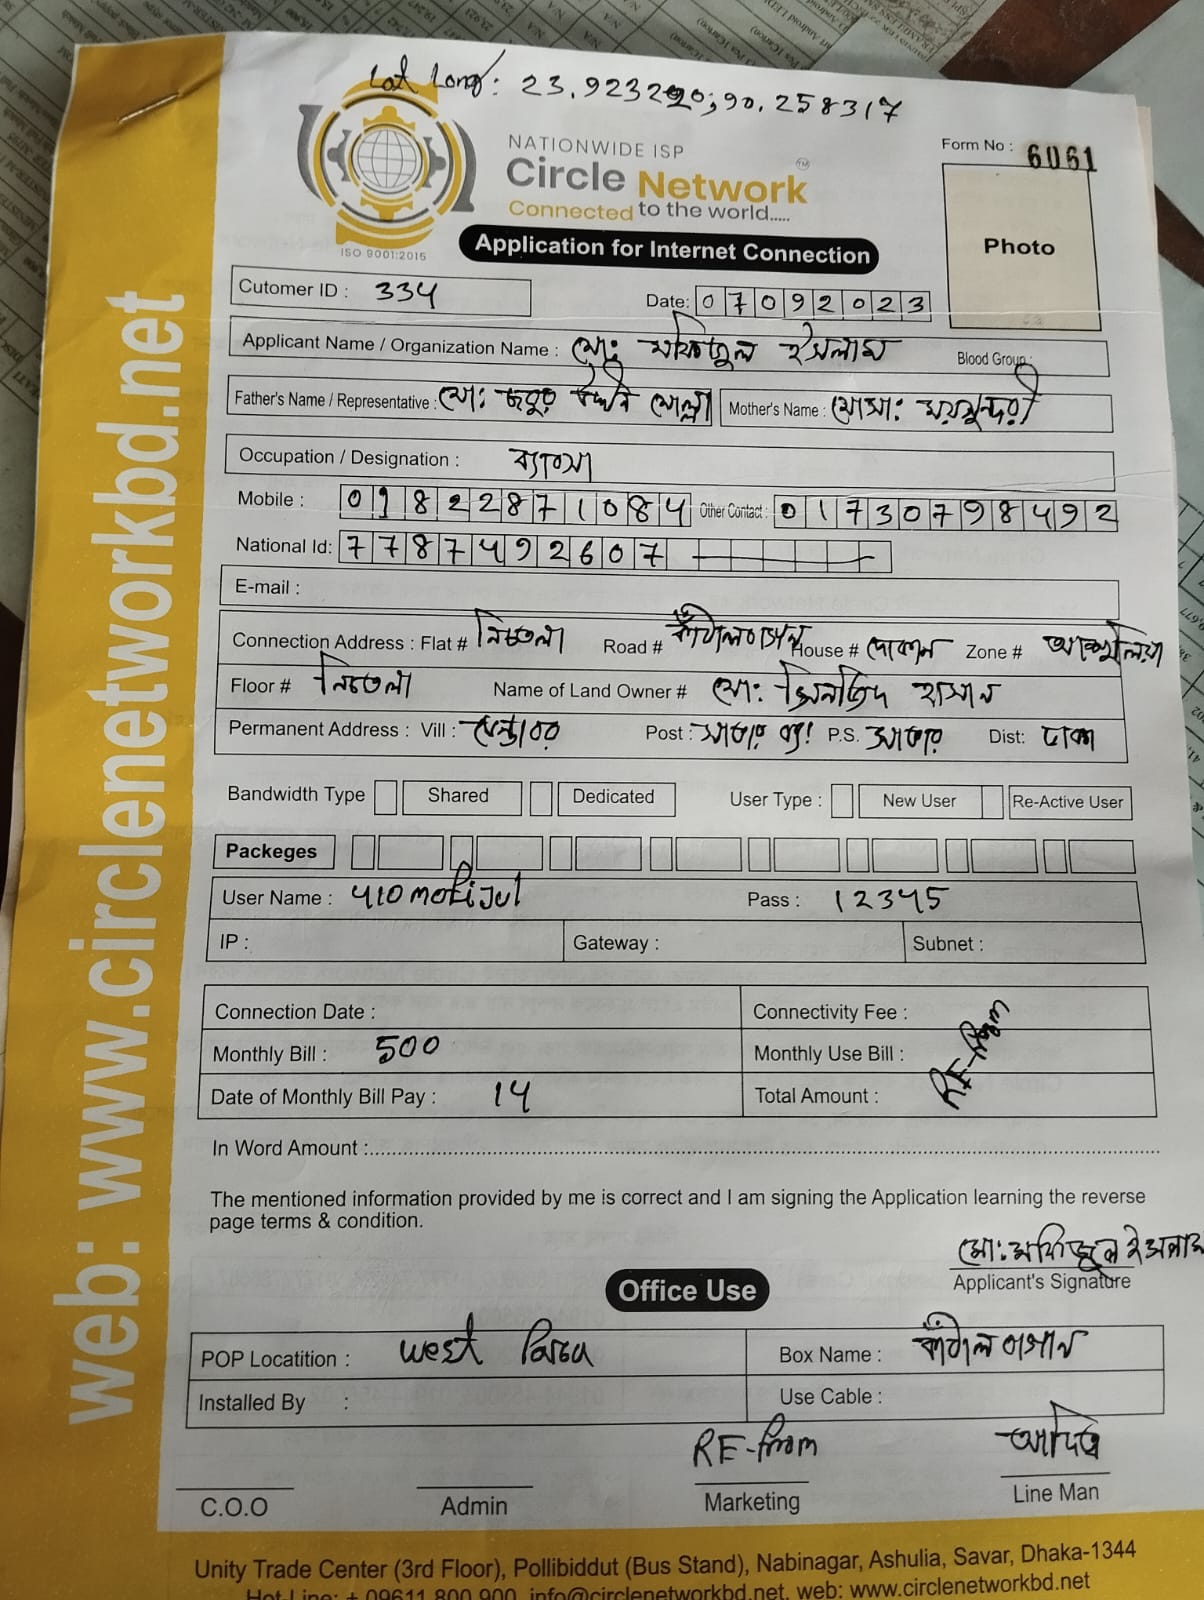 Lat Long: 23.923290;90.258317
NATIONWIDE ISP
Circle Network TM
Connected to the world.....
ISO 9001:2015
Form No : 6061
Photo
Application for Internet Connection
Cutomer ID : 334
Date: 07092023
Applicant Name / Organization Name : মো: মফিজুল ইসলাম Blood Group :
Father's Name / Representative : মো: জবুর উদ্দিন মোল্লা Mother's Name : মোসা: ময়মুন্দরী
Occupation / Designation : ব্যাবসা
Mobile : 01822871084 Other Contact : 01730798492
National Id: 7787492607
E-mail :
Connection Address : Flat # নিচতলা Road # কাঁঠালবাগান House # দোকান Zone # আশুলিয়া
Floor # নিচতলা Name of Land Owner # মো: হাসান
Permanent Address : Vill : Post : সাভার P.S. সাভার Dist: ঢাকা
Bandwidth Type Shared Dedicated User Type : New User Re-Active User
Packeges
User Name : 410mofijul Pass : 12345
IP : Gateway : Subnet :
Connection Date : Connectivity Fee :
Monthly Bill : 500 Monthly Use Bill : RE-From
Date of Monthly Bill Pay : 14 Total Amount :
In Word Amount :
The mentioned information provided by me is correct and I am signing the Application learning the reverse
page terms & condition.
মো: মফিজুল ইসলাম
Applicant's Signature
Office Use
POP Locatition : West Para Box Name : কাঁঠাল বাগান
Installed By : Use Cable :
RE-From
C.O.O Admin Marketing Line Man
Unity Trade Center (3rd Floor), Pollibiddut (Bus Stand), Nabinagar, Ashulia, Savar, Dhaka-1344
Hot Line: + 09611 800 900, info@circlenetworkbd.net, web: www.circlenetworkbd.net
web: www.circlenetworkbd.net